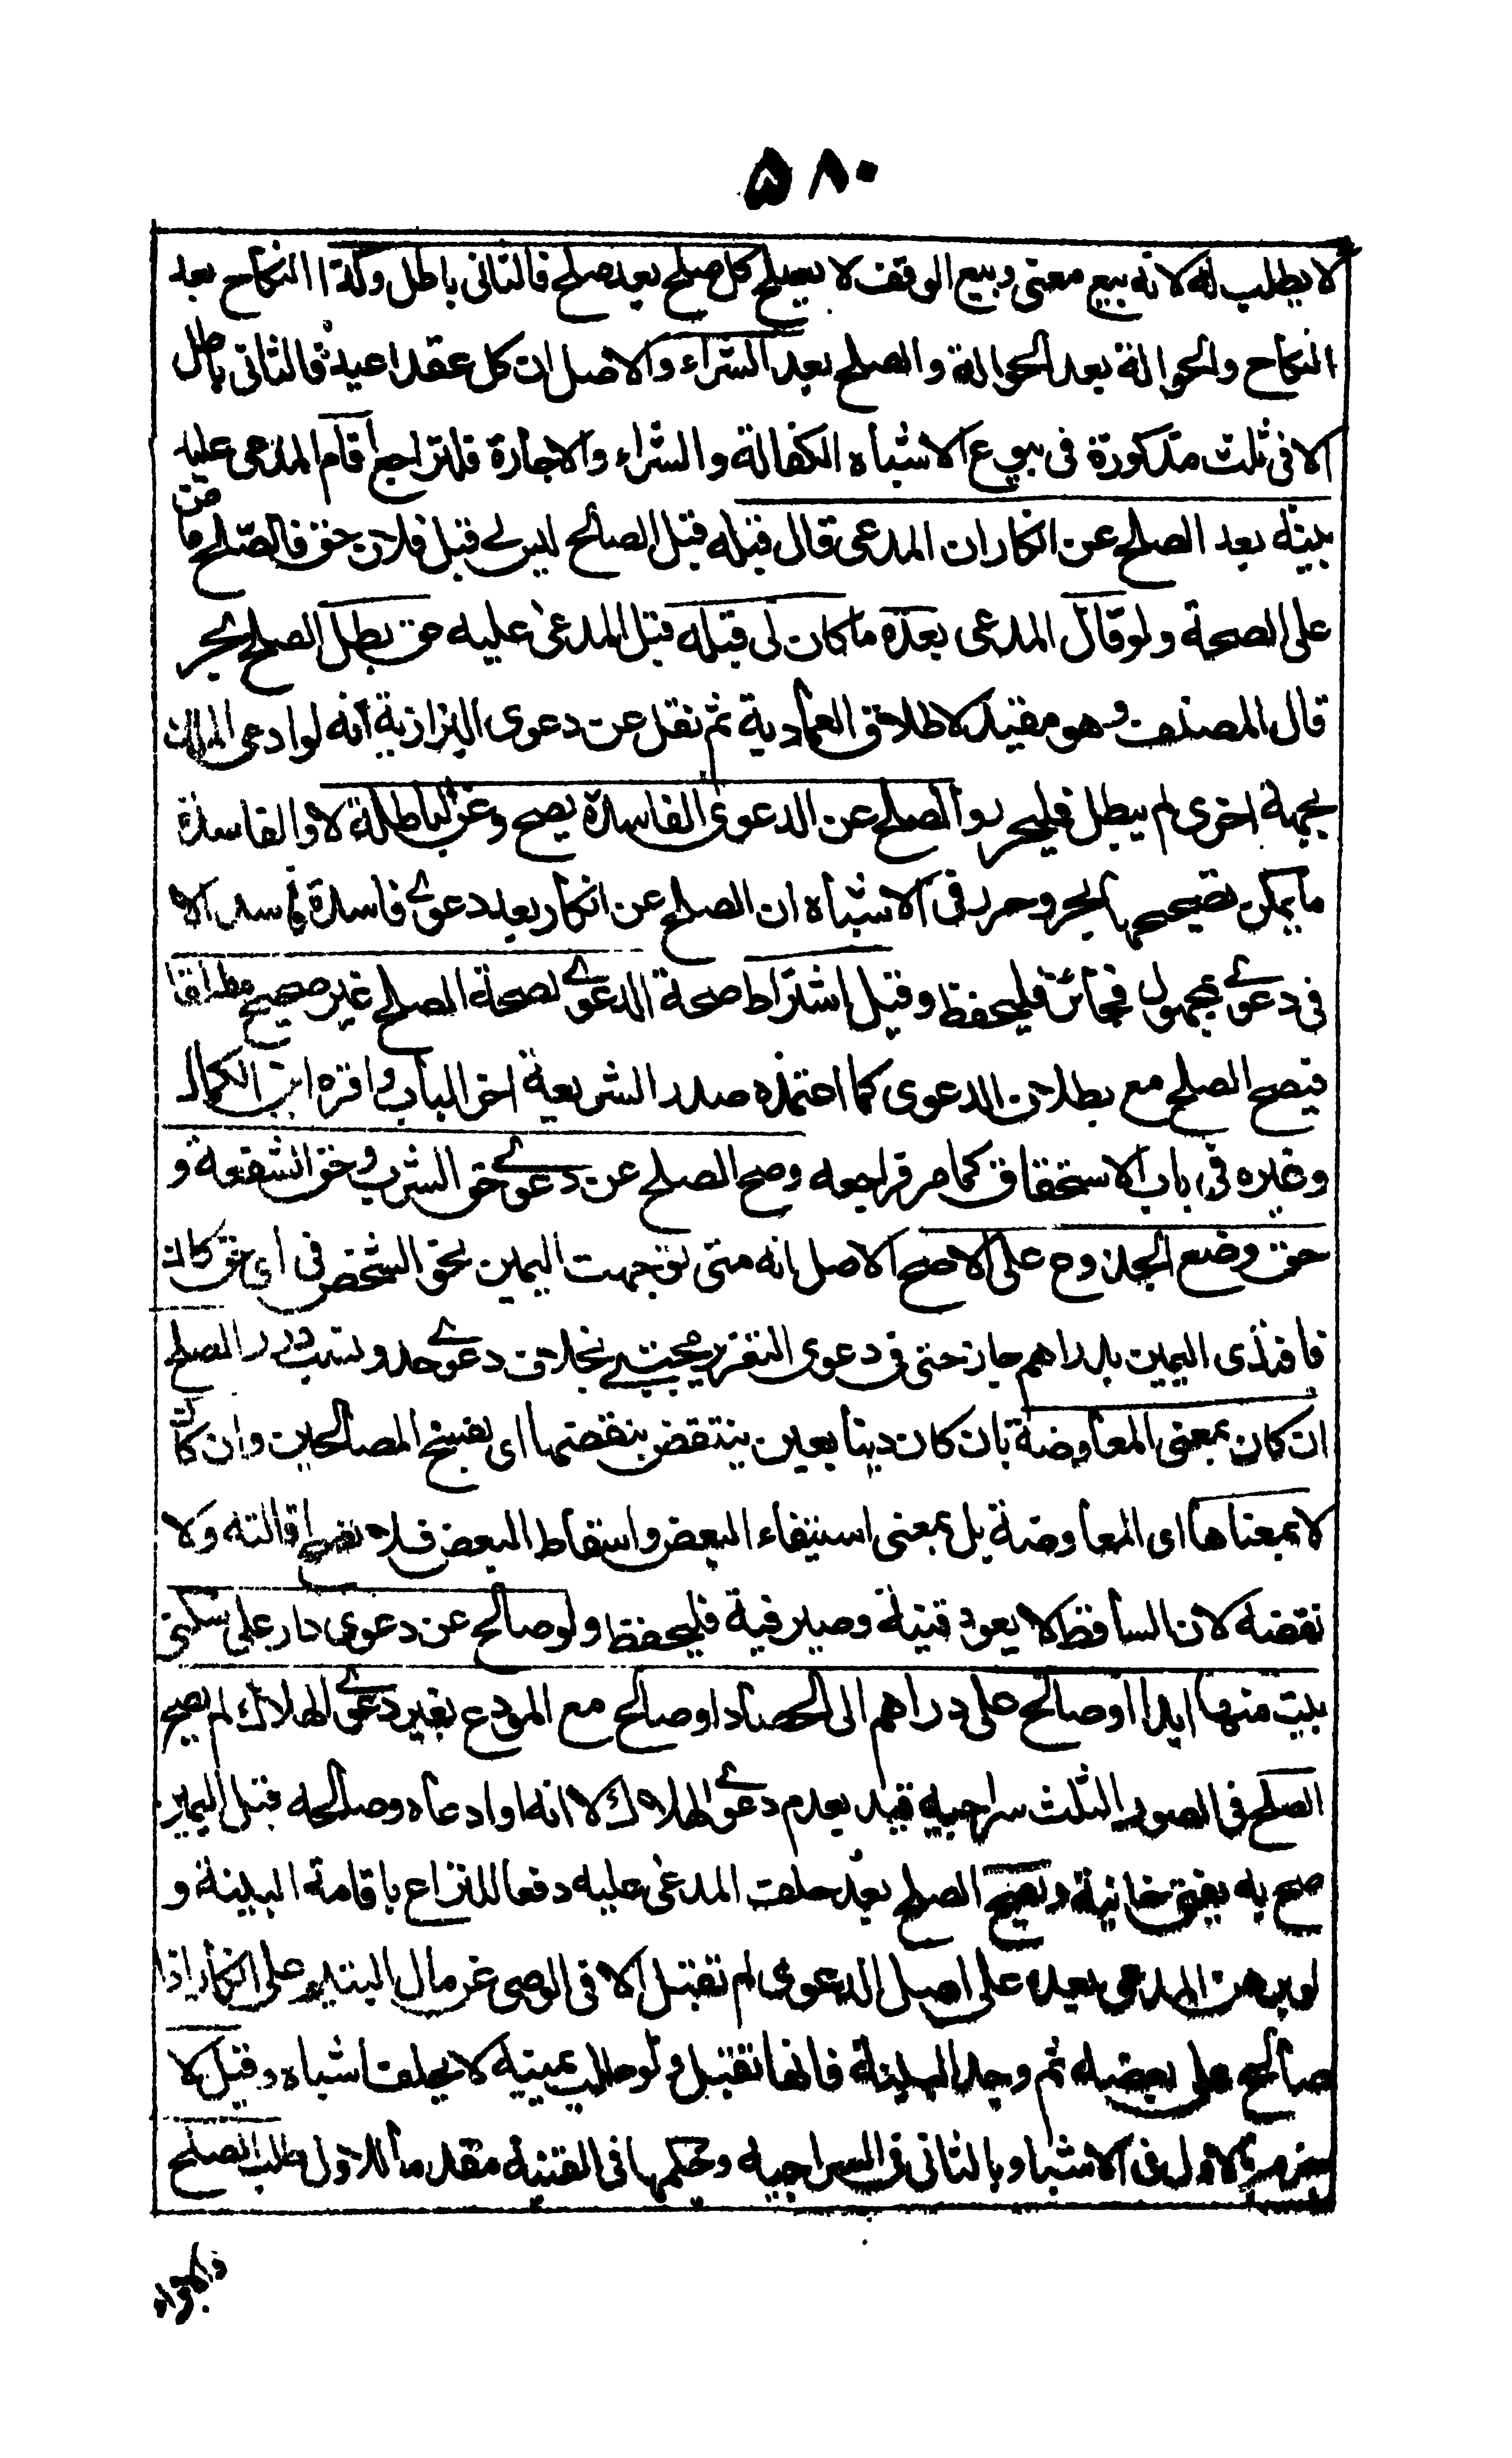 ٥٨٠
لا يطلب له لانه بيع معنى وبيع الوقف لا يصح كل صلح بعد صلح فالثانى باطل وكذا النكاح بعد
النكاح والحوالة بعد الحوالة والصلح بعد الشراء والاصل ان كل عقد اعيد فالثانى باطل
الا فى ثلث مذكورة فى بيوع الاشباه الكفالة والشراء والاجارة فلتراجع اقام المدعى عليه
بينة بعد الصلح عن انكار ان المدعى قال قبله قبل الصلح ليس لے قبل فلان حق فالصلح ماض
على الصحة ولو قال المدعى بعده ما كان لى قبله قبل المدعى عليه حق بطل الصلح بحر
قال المصنف وهو مقيد لاطلاق العمادية ثم نقل عن دعوى البزازية انه لو ادعى الملك
بجهة اخرى لم يبطل فليحرر والصلح عن الدعوى الفاسدة يصح وعن الباطلة لا والفاسدة
ما يمكن تصحيحها بحر وحرر فى الاشباه ان الصلح عن انكار بعد دعوے فاسدة فاسد الا
فى دعوے مجهول فجائز فليحفظ وقيل اشتراط صحة الدعوے لصحة الصلح غير صحيح مطلقا
فيصح الصلح مع بطلان الدعوى كما اعتمده صدر الشريعة اخر الباب واقره ابن الكمال
وغيره فى باب الاستحقاق كما مر فراجعه وصح الصلح عن دعوے حق الشرب وحق الشفعة و
حق وضع الجذوع على الاصح الاصل انه متى توجهت اليمين نحو الشخص فى اى حق كان
فافتدى اليمين بدراهم جاز حتى فى دعوى التعزير مجتبے بخلاف دعوے حد ونسب درر الصلح
ان كان بمعنى المعاوضة بان كان دينا بعين ينتقض بنقضهما اى بفسخ المصالحين وان كان
لا بمعناها اى المعاوضة بل بمعنى استيفاء البعض واسقاط البعض فلا تصح اقالته ولا
نقضه لان الساقط لا يعود قنية وصيرفية فليحفظ ولو صالح عن دعوى دار على سكنى
بيت منها ابدا او صالح على دراهم الى الحصاد او صالح مع المودع بغير دعوے الهلاك لم يصح
الصلح فى الصور الثلث سراجية قيد بعدم دعوے الهلاك لانه لو ادعاه وصالحه قبل اليمين
صح به يفتى خانية ويصح الصلح بعد حلف المدعى عليه دفعا للنزاع باقامة البينة و
لو برهن المدعى بعده على اصل الدعوى لم تقبل الا فى الوصى عن مال اليتيم على انكار اذا
صالح على بعضه ثم وجد البينة فانها تقبل ولو طلب يمينه لا يحلف اشباه وقيل لا
جزم بالاول فى الاشباه وبالثانى فى السراجية وحكهما فى القنية مقدما للاول طلب الصلح